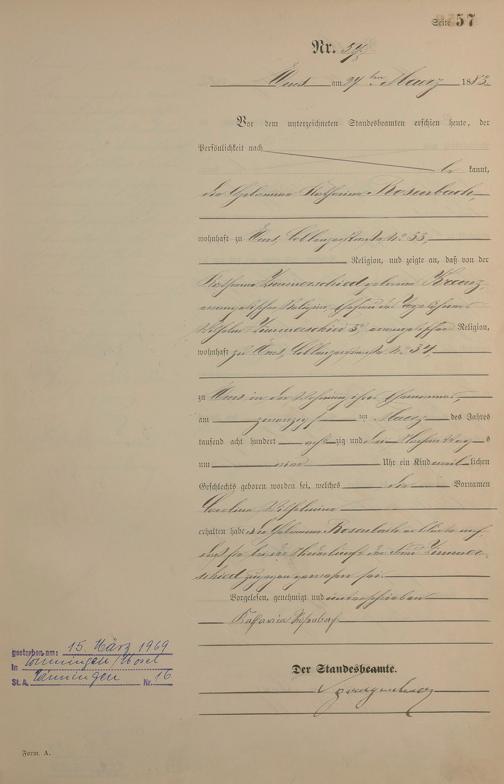 Seite 57
Nr. 57
Ems am 24 ten März 1883
Vor dem unterzeichneten Standesbeamten erschien heute, der
Persönlichkeit nach
be kannt,
die Hebamme Katharina Rosenbach
wohnhaft zu Ems, Coblenzerstraße No 33,
Religion, und zeigte an, daß von der
Katharina Zimmerschied geborene
evangelischer Religion, Ehefrau des
Wilhelm Zimmerschied evangelischer Religion,
wohnhaft zu Ems, Coblenzerstraße No 34,
zu Ems in der Wohnung ihres Ehemannes,
am März des Jahres
tausend acht hundert acht zig und drei Nachmittag s
um Uhr ein Kind weib lichen
Geschlechts geboren worden sei, welches Vornamen
Carolina Wilhelmine
erhalten habe die Hebamme Rosenbach erklärte noch,
daß sie bei der Niederkunft der Frau Zimmer-
schied zugegen gewesen sei.
Vorgelesen, genehmigt und unterschrieben
Der Standesbeamte.
gestorben am: 15. März 1969
in /Mosel
St. A. Nr. 16
Form. A.